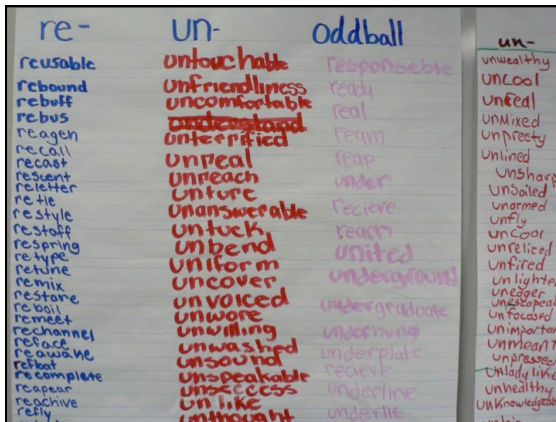 re-
reusable
rebound
rebuff
rebus
reagen
recall
recast
rescent
reletter
retie
restyle
restaff
respring
retype
retune
remix
restore
reboil
remeet
rechannel
reface
reawake
refloat
recomplete
reapear
reachive
refly
un-
untouchable
unfriendliness
uncomfortable
understand
unterrified
unreal
unreach
unture
unanswerable
untuck
unbend
uniform
uncover
unvoiced
unwore
unwilling
unwashed
unsound
unspeakable
unseccess
unlike
unthought
oddball
responseble
ready
real
ream
reap
under
recieve
reach
united
underground
undergraduate
underhung
underplate
recieve
underline
underlie
un-
unwealthy
uncool
unreal
unmixed
unpreety
unlined
unsharp
unsoiled
unarmed
unfly
uncool
unreliced
unfired
unlighte
uneager
unescapea
unfocased
unimportan
unmeant
unpressed
unlady like
unhealthy
unknowledgeab